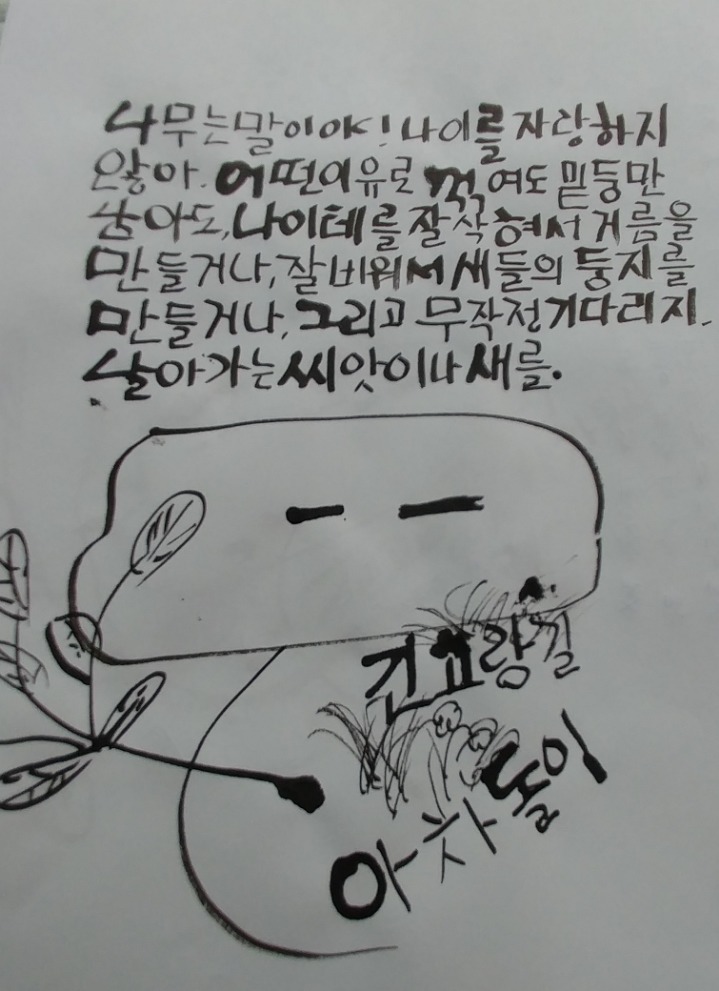 나무는말이야! 나이를 자랑하지
않아. 어떤이유로 꺾여도 밑둥만
남아도, 나이테를 잘 삭혀서 거름을
만들거나, 잘비워서 새들의 둥지를
만들거나, 그리고 무작정기다리지.
날아가는 씨앗이나 새를.
아차돌이